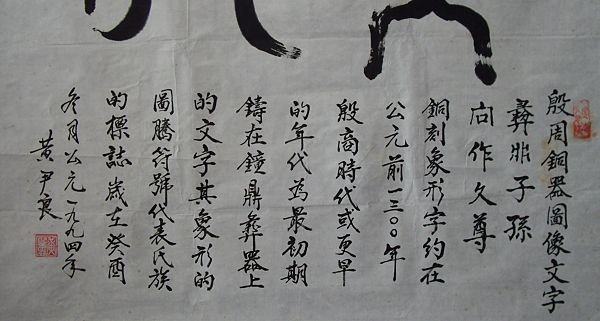 殷周銅器圖像文字
彝鼎子孫
向作父尊
銅刻象形字約在
公元前一三００年
殷商時代或更早
的年代為最初期
鑄在鐘鼎彝器上
的文字其象形的
圖騰符號代表氏族
的標誌歲在癸酉
冬月公元一九九四年
黃尹良